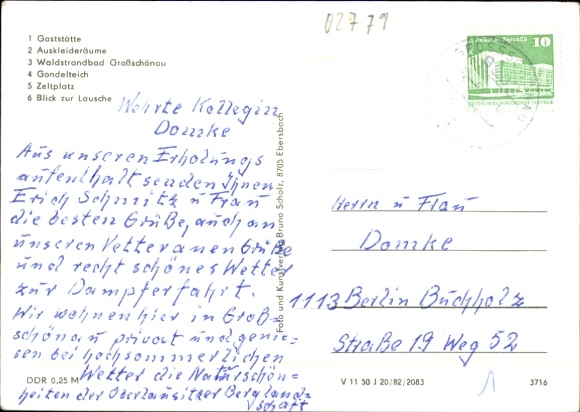 02779
1 Gaststätte
2 Auskleideräume
3 Waldstrandbad Großschönau
4 Gondelteich
5 Zeltplatz
6 Blick zur Lausche
Wehrte Kollegin
Domke
Aus unseren Erholungs
aufenthalt senden Ihnen
Erich Schmitz u Frau
die besten Grüße, auch an
unseren Vetteranen Grüße
und recht schönes Wetter
zur Dampferfahrt.
Wir wohnen hier in Groß-
schönau privat und genie-
sen bei hochsommerlichen
Wetter die Naturschön-
heiten der Oberlausitzer Bergland-
schaft
DDR 0,25 M
Foto und Kunstverlag Bruno Scholz, 8705 Ebersbach
10
Herrn u Frau
Domke
1113 Berlin Buchholz
Straße 19 Weg 52
V 11 50 J 20/82/2083
3716
1